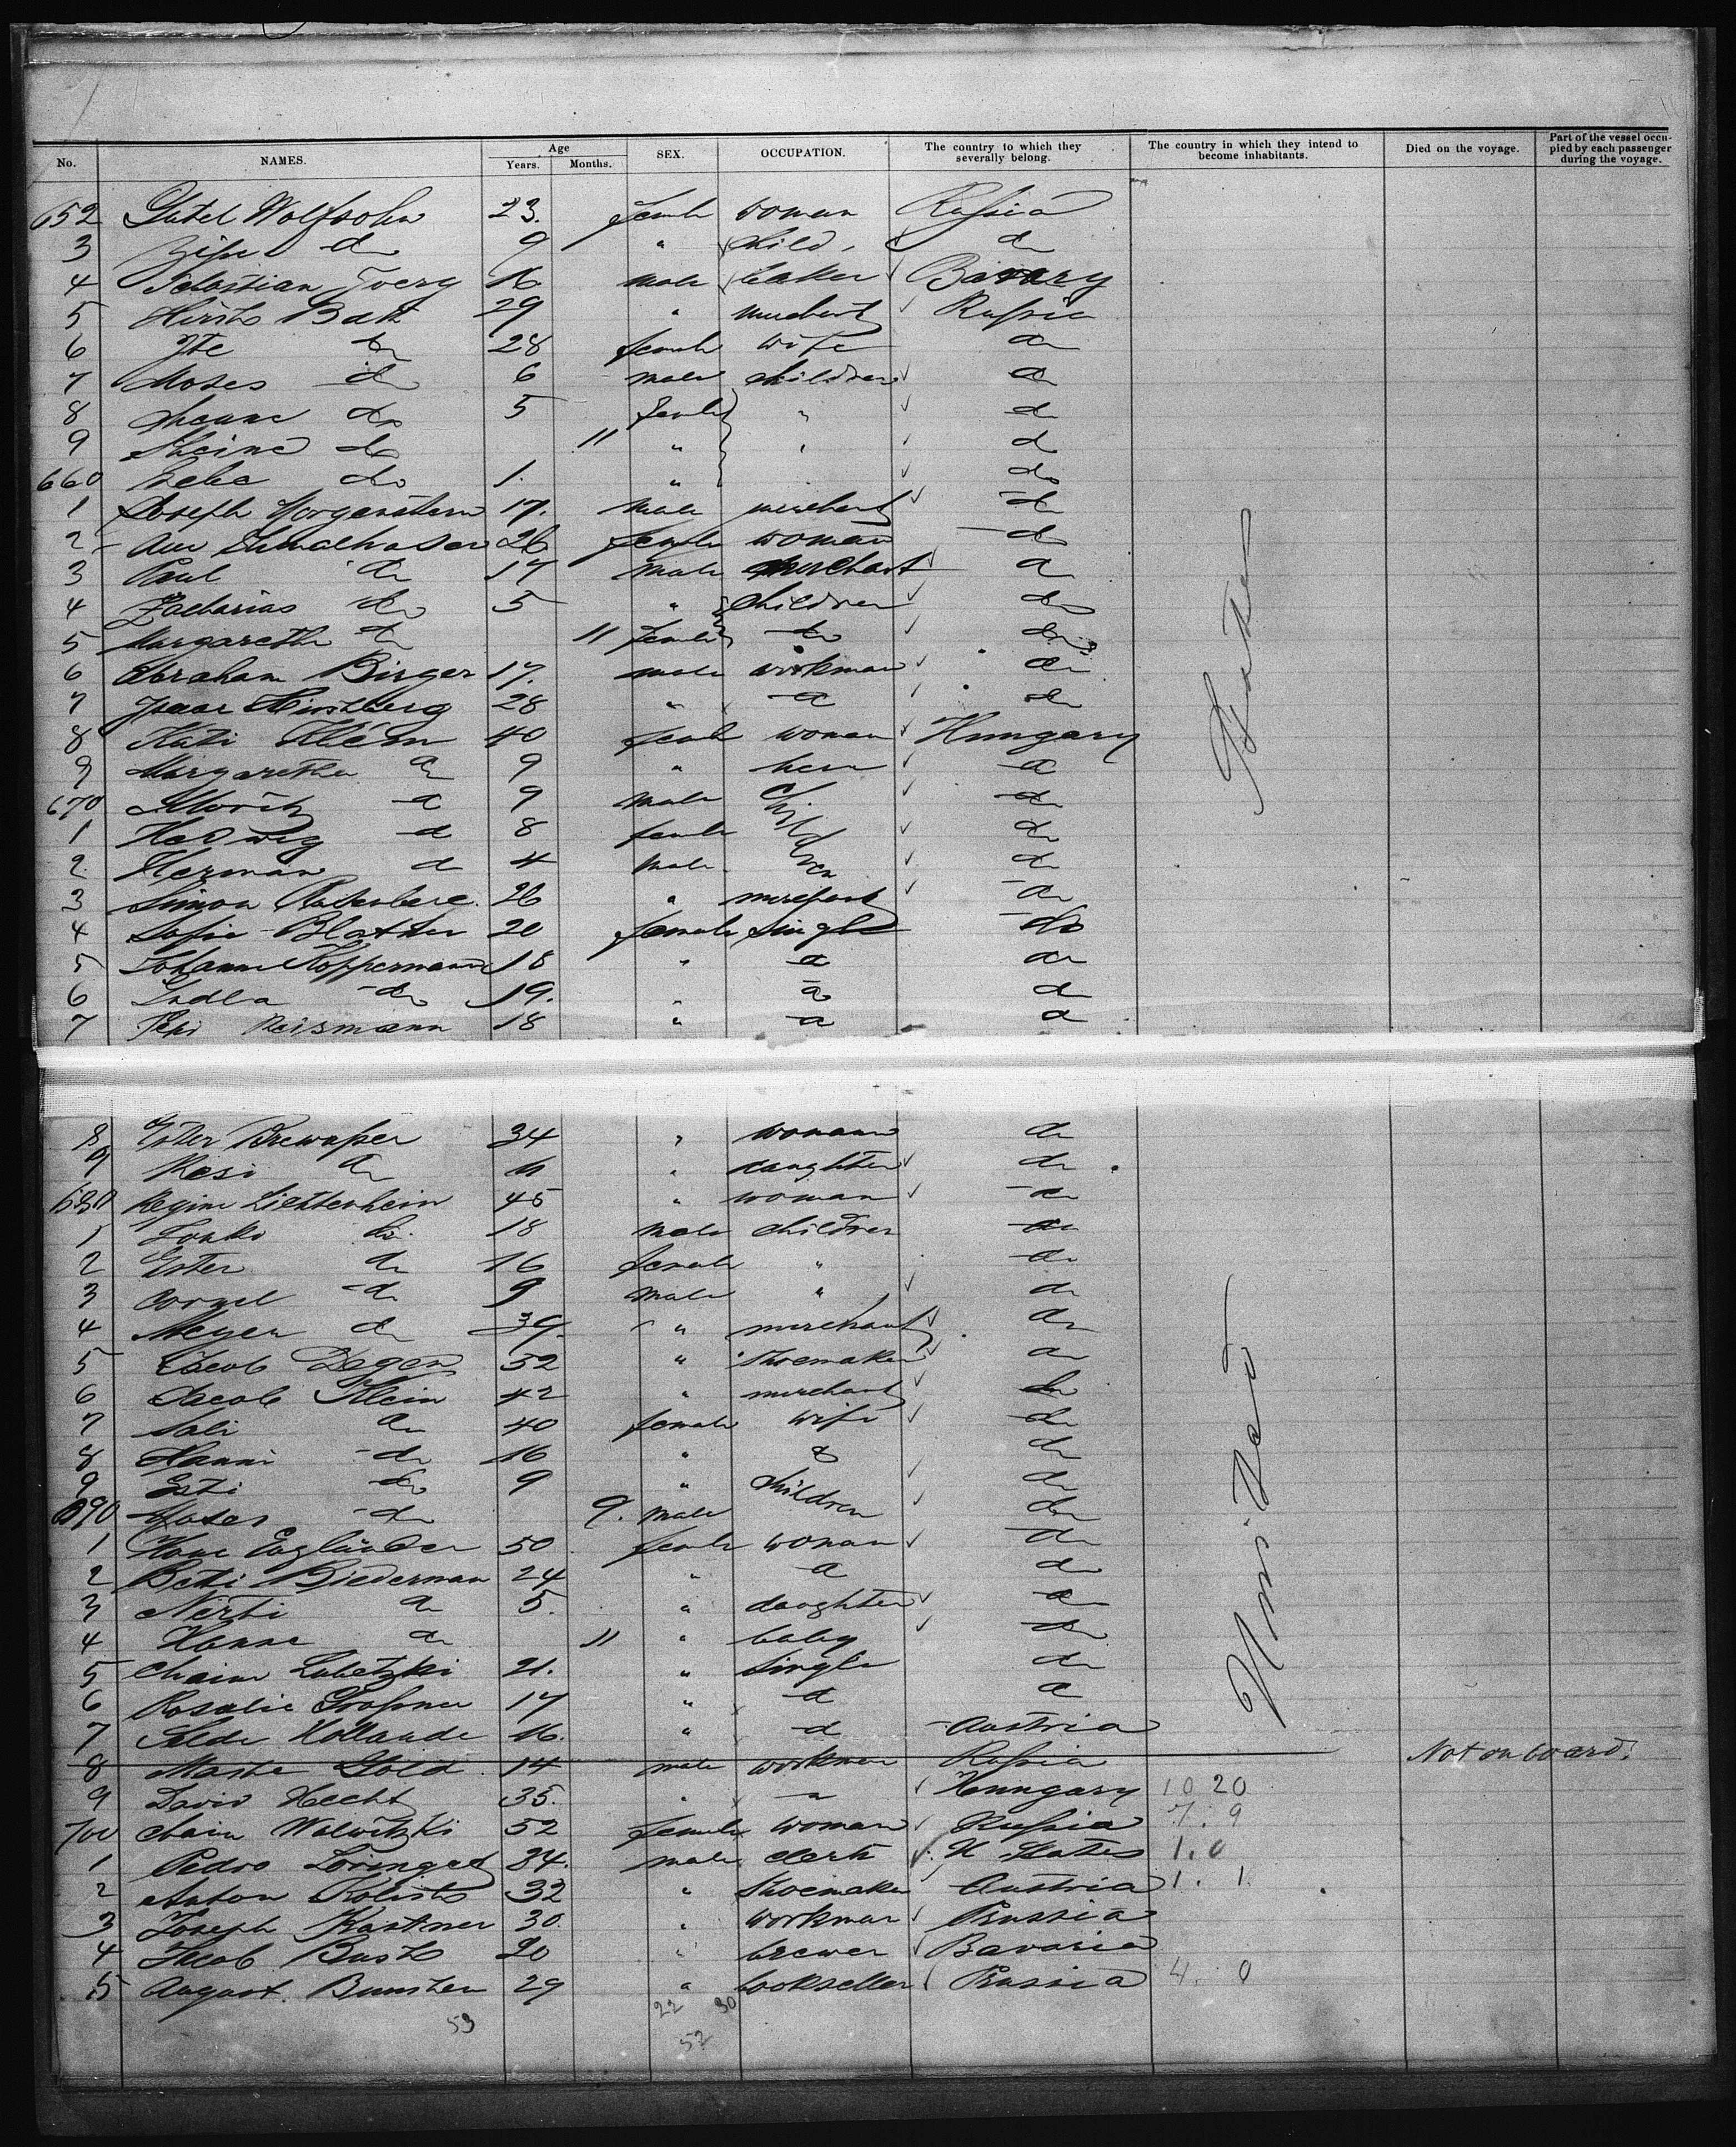 No. NAMES. Age Years. Months. SEX. OCCUPATION. The country to which they severally belong. The country in which they intend to become inhabitants. Died on the voyage. Part of the vessel occupied by each passenger during the voyage.
652 Gutel Wolfsohn 23. female woman Russia
3 do 9 " child do
4 Sebastian Joerg 16 male baker Bavary
5 Hirsch Batt 29 " merchant Russia
6 Ite do 28 female wife do
7 Moses do 6 male children do
8 do 5 female " do
9 Scheine do 11 " " do
660 do 1. " do
1 Joseph Morgenstern 17. male merchant do
2 26 female woman do
3 Paul do 17 male merchant do
4 Zacharias do 5 " children do
5 Margaretha do 11 female do do
6 Abraham Birger 17. male workman do
7 Isaac Hirschberg 28 " do do
8 Kati Klein 40 female woman Hungary
9 Margaretha do 9 " her do
670 Moritz do 9 male children do
1 Hedwig do 8 female do
2 Herman do 4 male do
3 Simon 26 " merchant do
4 Sofie Blather 20 female single do
5 Johanne Koppermann 18 " do do
6 do 19. " do do
7 Pepi Reismann 18 " do do
8 Ester 34 " woman do
9 Resi do 11 " daughter do
680 Regine Lichtenhein 45 " woman do
1 do 18 male children do
2 Ester do 16 female " do
3 do 9 male " do
4 Meyer do 39. " merchant do
5 Jacob Degen 52 " shoemaker do
6 Jacob Klein 42 " merchant do
7 Sali do 40 female wife do
8 Hanni do 16 " do
9 Esti do 9 " children do
690 Moses do 9. male do
1 Hane Engländer 50 female woman do
2 Betti Biederman 24 " do do
3 do 5. " daughter do
4 Hanna do 11 " baby do
5 Chaim Lubetzki 21. " single do
6 Rosalie 17 " do do
7 Hollande 16. " do Austria
8 Gold 14 male workman Russia Not on board.
9 David Hecht 35. " " Hungary 10 20
700 Walwitzki 52 female woman Russia 7. 9
1 Pedro 34. male clerk U States 1. 0
2 Anton 32 " shoemaker Austria 1. 1.
3 Joseph Kastner 30. " workman Prussia
4 Jacob 20 " brewer Bavaria
5 August. 29 " bookseller Prussia 4. 0
United States
53 22 30
52